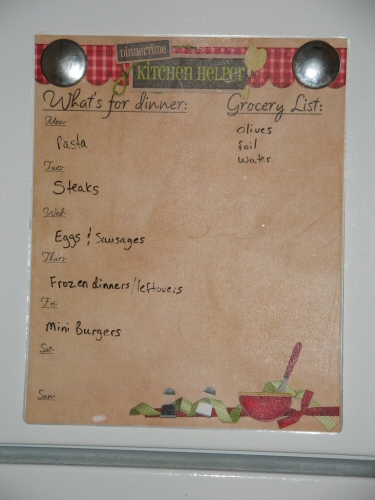 Dinnertime
Kitchen Helper
What's for dinner:
Mon-
Pasta
Tues-
Steaks
Wed-
Eggs & Sausages
Thurs-
Frozen dinners/leftovers
Fri-
Mini Burgers
Sat-
Sun-
Grocery List:
Olives
foil
water